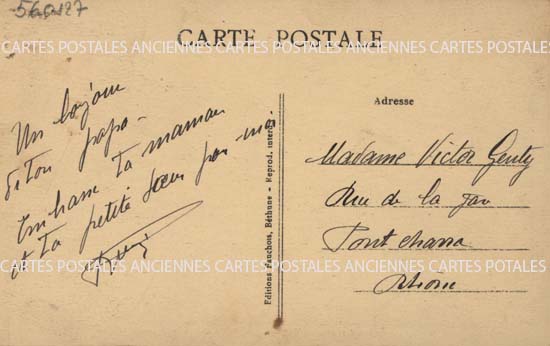 560127
CARTE POSTALE
CARTES POSTALES ANCIENNES CARTES POSTALES ANCIENNES CARTES POSTALES ANCIENNES
Un bonjour
de ton papa -
Embrasse ta maman
et ta petite sœur pour moi
Editions Fauchois, Béthune - Reprod. interd.
Adresse
Madame Victor Genty
Rue de la Gare
Pontcharra
Rhône
CARTES POSTALES ANCIENNES CARTES POSTALES ANCIENNES CARTES POTALES ANCIENNES